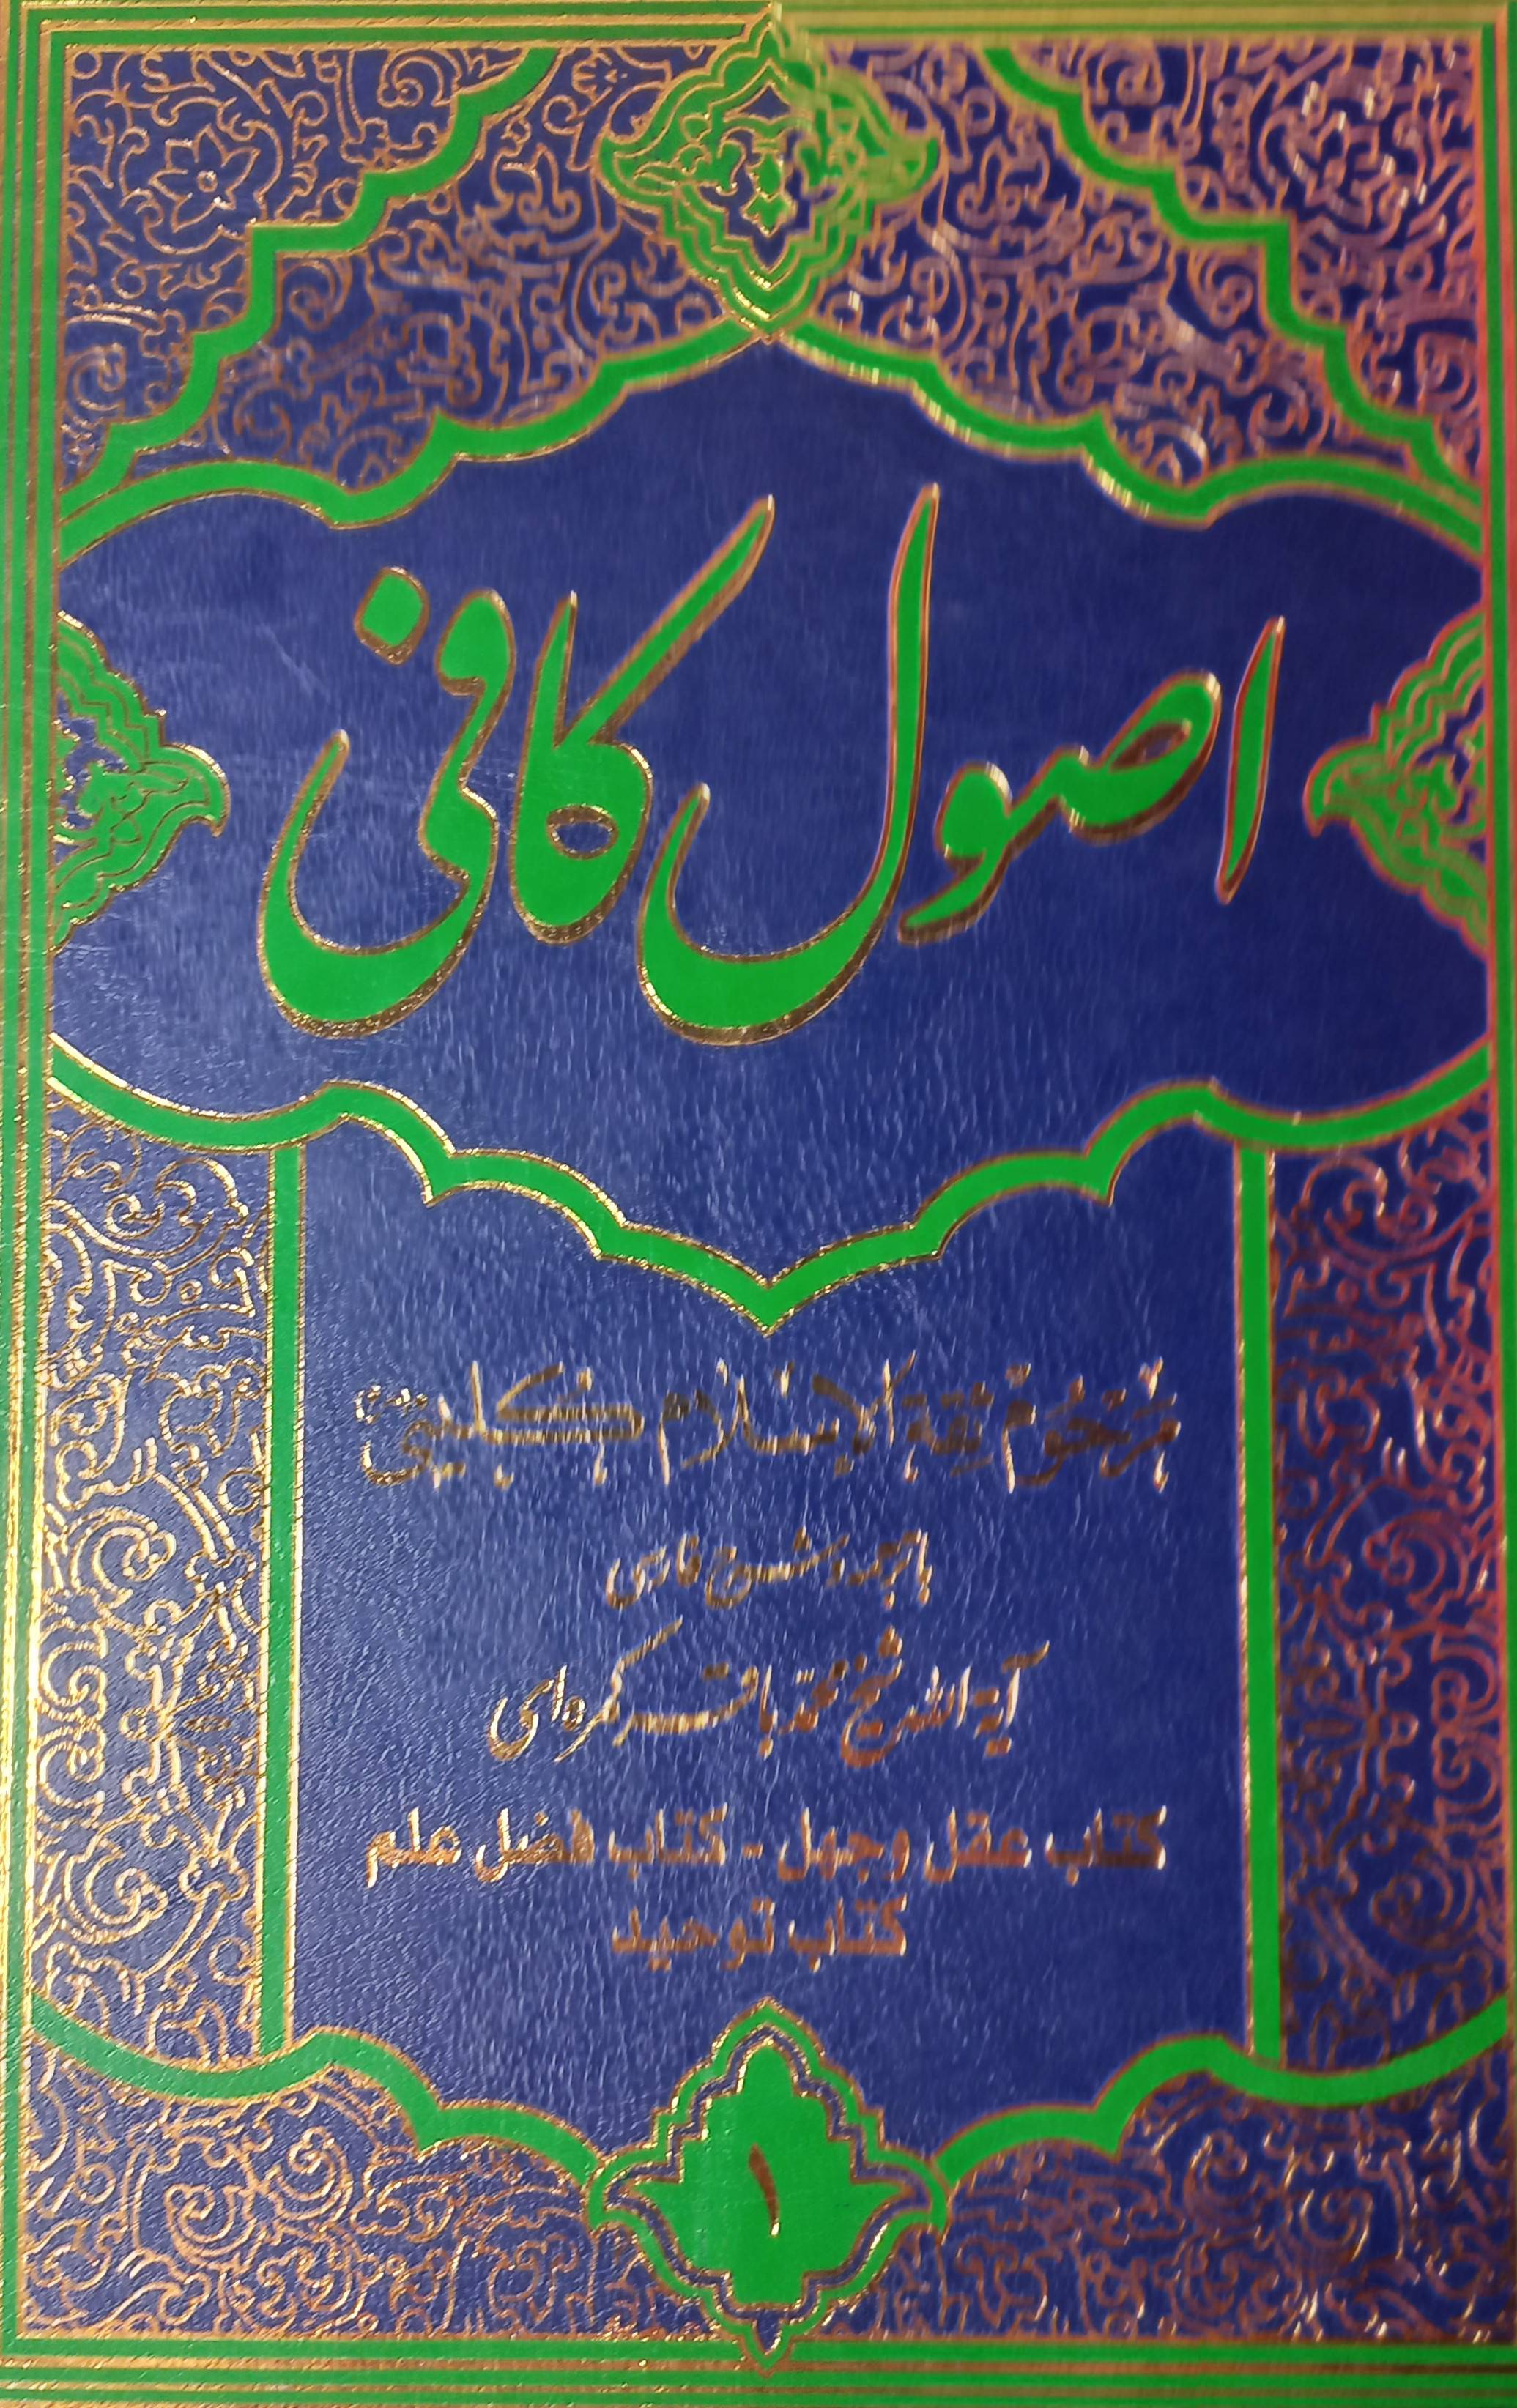 اصول کافی
مرحوم ثقة الإسلام کلینی
باترجمه و شرح فارسی
آیة الله شیخ محمد باقر کمره‌ای
کتاب عقل وجهل - کتاب فضل علم
کتاب توحید
۱